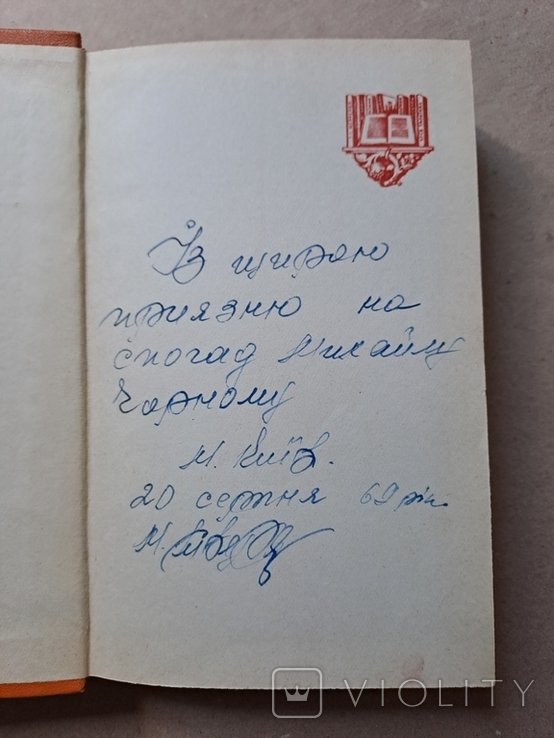 Із щирою
приязню на
спогад Михайлу
Чорному
м. Київ.
20 серпня 69 рік
М.
VIOLITY